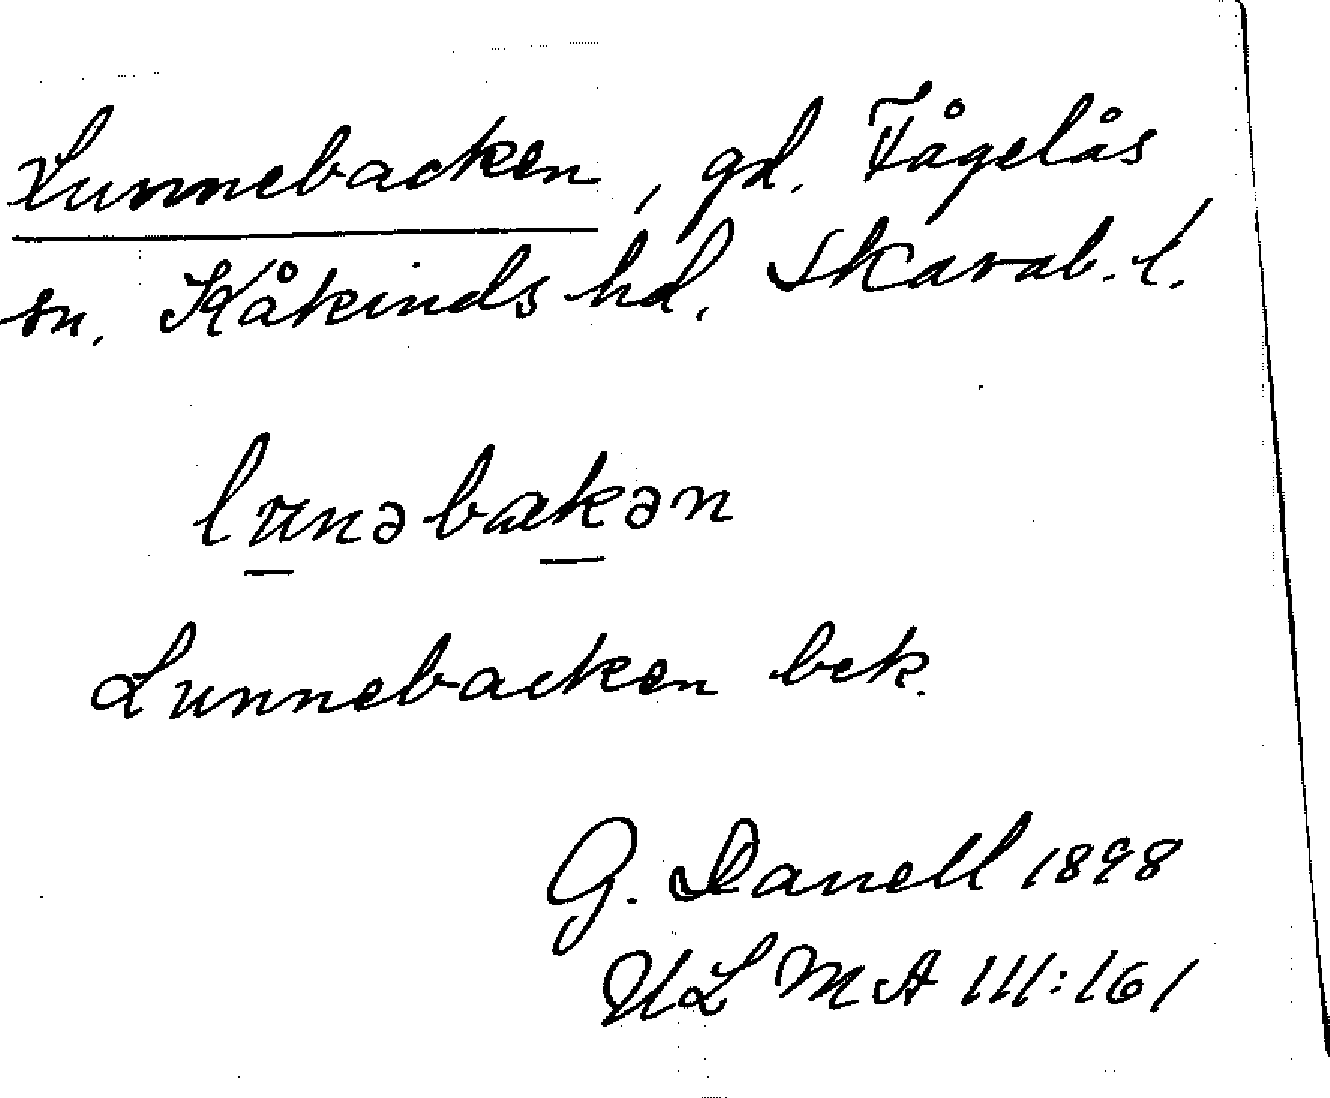 Lunnebacken, gd. Fågelås
sn. Kåkinds hd. Skarab. l.
lunəbakən
Lunnebacken bek.
G. Danell 1898
ULMA 111:161